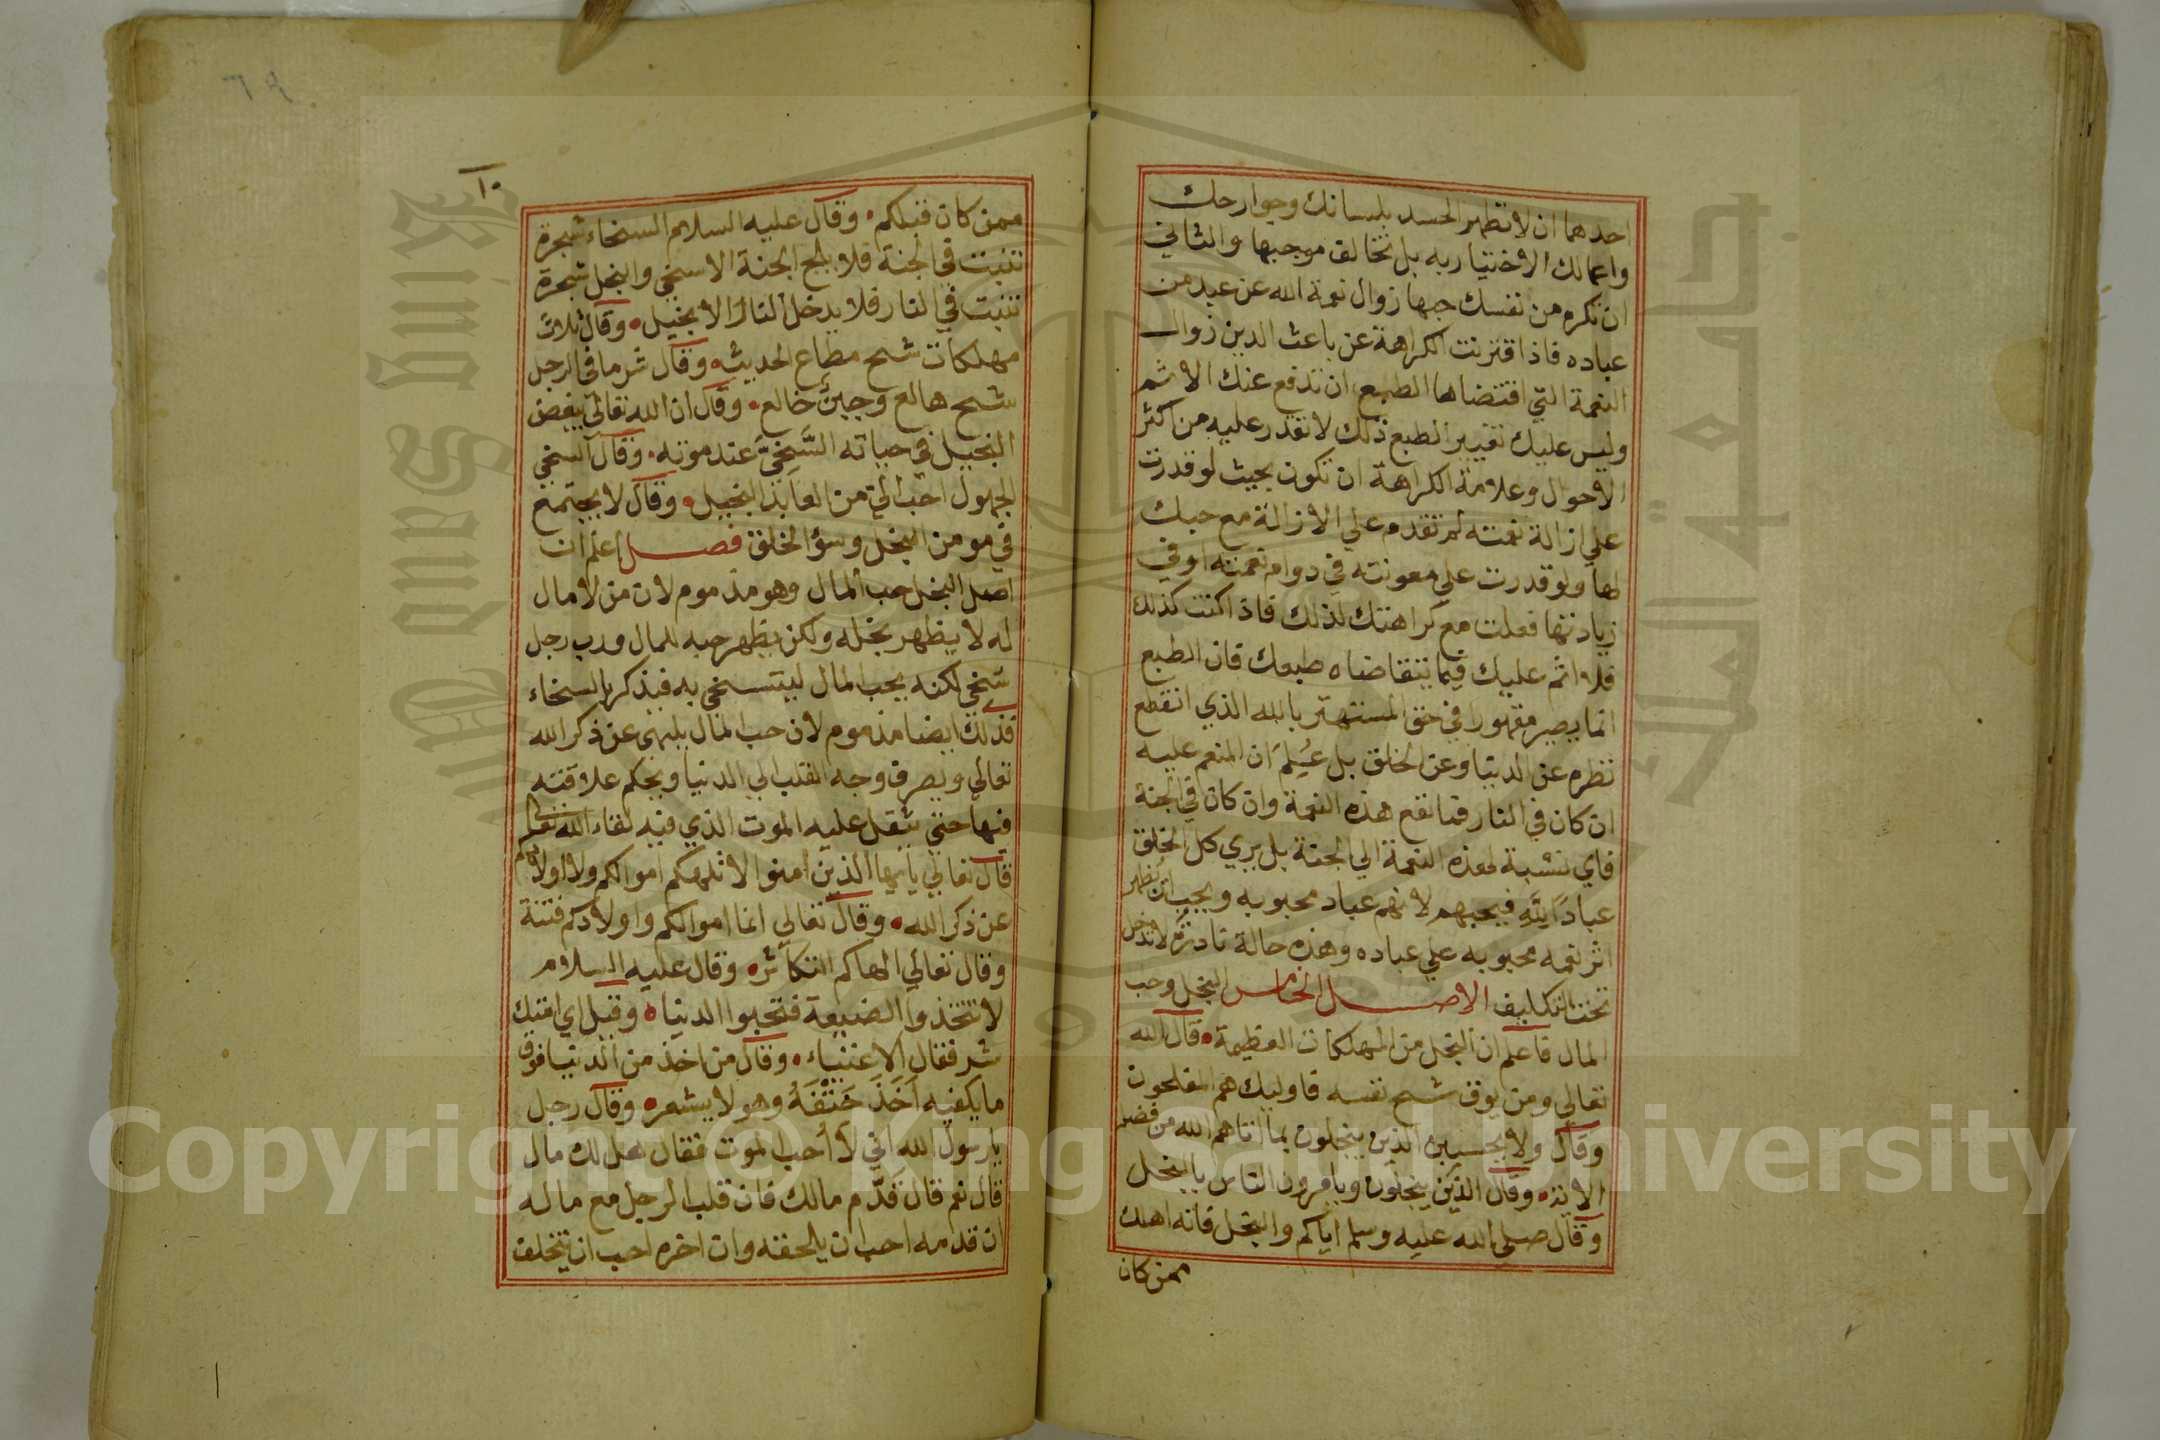 احدهما ان لا تظهر الحسد بلسانك وجوارحك
واعمالك الاختياريه بل تخالف موجبها والثاني
ان تكره من نفسك حبها زوال نعمة الله عن عبد من
عباده فاذا اقترنت الكراهة عن باعث الدين زوال
النعمة التي اقتضاها الطبع اندفع عنك الاثم
وليس عليك تغيير الطبع ذلك لا تقدر عليه من اكثر
الاحوال وعلامة الكراهة ان تكون بحيث لو قدرت
علي ازالة نعمته لم تقدم علي الازالة مع حبك
لها ولو قدرت علي معونته في دوام نعمته او في
زيادتها فعلت مع كراهتك لذلك فاذا كنت كذلك
فلا اثم عليك فيما يتقاضاه طبعك فان الطبع
انما يصير مقهورا في حق المستهتر بالله الذي انقطع
نظره عن الدنيا وعن الخلق بل علم ان المنعم عليه
ان كان في النار فما تنفع هذه النعمة وان كان في الجنة
فاي نسبة لهذه النعمة الي الجنة بل يري كل الخلق
عبادًا لله فيحبهم لانهم عباد محبوبه ويحب ان تظهر
اثر نعمه محبوبه علي عباده وهذه حالة نادرة لا تدخل
تحت التكليف الاصل الخامس البخل وحب
المال فاعلم ان البخل من المهلكات العظيمة قال الله
تعالي ومن يوق شح نفسه فاوليك هم المفلحون
وقال ولا يحسبن الذين يبخلون بما اتاهم الله من فضله
الاية وقال الذين يبخلون ويامرون الناس بالبخل
وقال صلي الله عليه وسلم اياكم والبخل فانه اهلك
ممن كان
٦٩
١٠
ممن كان قبلكم وقال عليه السلام السخاء شجرة
تنبت في الجنة فلا يلج الجنة الا سخي والبخل شجرة
تنبت في النار فلا يدخل النار الا بخيل وقال ثلاث
مهلكات شح مطاع الحديث وقال شر ما في الرجل
شح هالع وجبن خالع وقال ان الله تعالي يبغض
البخيل في حياته السخي عند موته وقال السخي
الجهول احب الي من العابد البخيل وقال لا يجتمع
في مومن البخل وسؤ الخلق فصل اعلم ان
اصل البخل حب المال وهو مذموم لان من لا مال
له لا يظهر بخله ولكن يظهر حبه للمال ورب رجل
سخي لكنه يحب المال ليتسخي به فيذكر بالسخاء
فذلك ايضا مذموم لان حب المال يلهي عن ذكر الله
تعالي ويصرف وجه القلب الي الدنيا ويحكم علاقته
فيها حتي يثقل عليه الموت الذي فيه لقاء الله تعالي
قال تعالي يايها الذين امنوا لا تلهكم اموالكم ولا اولادكم
عن ذكر الله وقال تعالي انما اموالكم واولادكم فتنة
وقال تعالي الهاكم التكاثر وقال عليه السلام
لا تتخذوا الضيعة فتحبوا الدنيا وقيل اي امتك
شر فقال الاغنياء وقال من اخذ من الدنيا فوق
ما يكفيه اخذ حتفه وهو لا يشعر وقال رجل
يا رسول الله اني لا احب الموت فقال هل لك مال
قال نعم قال قدّم مالك فان قلب الرجل مع ماله
ان قدمه احب ان يلحقه وان اخره احب ان يتخلف
Copyright © King Saud University